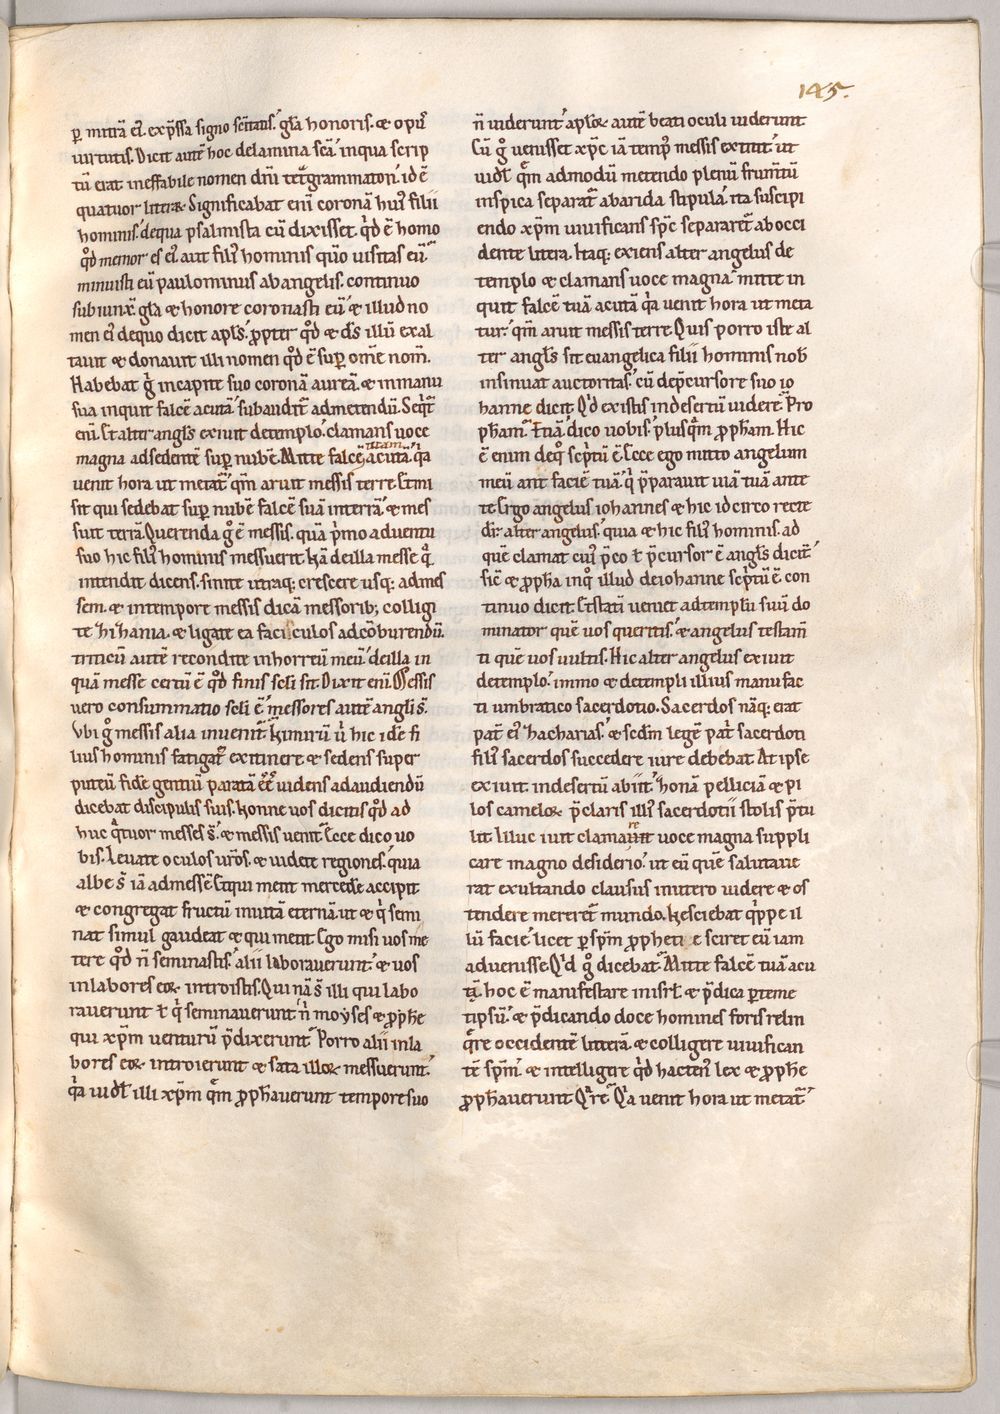 145.
p mitrā ei. exp̄ssa signo sc̄itatis. gl̄a honoris. & opus
uirtutis. Dicit autē hoc de lamina sc̄a in qua scrip
tū erat ineffabile nomen dn̄i tetᵃgrammaton. id ē
quatuor litteraꝝ. Significabat eni coronā huiꝰ filii
hominis. de qua psalmista cū dixisset. qͥd ē homo
qd̄ memor es eiꝰ. aut filiꝰ hominis qm̄o uisitas eū.
minuisti eū paulominus ab angelis. continuo
subiunx̄. gl̄a & honore coronasti eū. & illud no
men eiꝰ de quo dicit apl̄s. ꝓpter qd̄ & ds̄ illū exal
tauit & donauit illi nomen qd̄ ē sup om̄e nom̄.
Habebat gͥ in capite suo coronā aureā. & in manu
sua inquit falcē acutā. subauditᷓ ad metendū. Seqͥtᷓ
eni. Et alter angl̄s exiuit de templo. clamans uoce
magna ad sedentē sup nubē. Mitte falcē tuam acutā. qͥa
uenit hora ut metatᷓ. qm̄ aruit messis terre. Et mi
sit qui sedebat sup nubē falcē suā in terrā. & mes
suit terrā. Querenda gͦ ē messis. quā pͥmo aduentu
suo hic filiꝰ hominis messuerit. Nā de illa messe qᷓ
intendit dicens. sinite utraq; crescere usq; ad mes
sem. & in tempore messis dicā messorib; colligi
te hͥ zizania. & ligate ea fasciculos ad cōburendū.
triticū autē recondite in horreū meū. de illa in
quā messe certū ē qd̄ finis scl̄i sit. Dixit eni. Messis
vero consummatio scl̄i ē. messores autē angli s̄.
Vbi gͦ messis alia inuenitᷓ. Nimirū uͥ hic idē fi
lius hominis fatigatꝰ ex itinere & sedens super
puteū fidē gentiū paratā ēē uidens ad audiendū
dicebat discipulis suis. Nonne uos dicitis qd̄ ad
huc qᷓtuor menses s̄. & messis uenit. Ecce dico uo
bis. Leuate oculos uros̄. & uidete regiones. quia
albe s̄ iā ad messē. Et qui metit mercedē accipit
& congregat fructū in uitā eternā. ut & qͥ semi
nat simul gaudeat & qui metit. Ego misi uos me
tere qd̄ n̄ seminastis. alii laborauerunt. & uos
in labores eoꝝ introistis. Qui nā s̄ illi qui labo
rauerunt ł qͥ seminauerunt. nͥ moyses & ꝓphe
qui xp̄m venturū p̄dixerunt. Porro alii in la
bores eoꝝ introierunt & sata illoꝝ messuerunt.
qͥa uidł illi xp̄m qᷓm ꝓphauerunt tempore suo
n̄ uiderunt. apl̄oꝝ autē beati oculi uiderunt
Cū gͦ uenisset xp̄c iā tempꝰ messis extitit. ut
uidł qᷓm admodū metendo plenū frumtū
in spica separatᷓ ab arida stipula. ita suscipi
endo xp̄m uiuificans sp̄c separaretᷓ ab occi
dente littera. Itaq; exiens alter angelus de
templo & clamans uoce magna. mitte in
quit falcē tuā acutā qͥa uenit hora ut meta
tur. qm̄ aruit messis terre. Quis porro iste al
ter angl̄s sit euangelica filii hominis nob̄
insinuat auctoritas. cū de p̄cursore suo io
hanne dicit. Qͥd existis in desertū uidere. Pro
pham̄. Etiā dico uobis. plusqᷓm ꝓpham̄. Hic
ē enim de qͦ sc̄ptū ē. Ecce ego mitto angelum
meū ant̄ faciē tuā. qͥ p̄parauit uiā tuā ante
te. Ergo angelus iohannes & hic idcirco recte
dr̄. alter angelus. quia & hic filiꝰ hominis. ad
quē clamat cuiꝰ p̄co ł p̄cursor ē angl̄s dicitᷓ
sic̄ & ꝓpha in qͦ illud de iohanne sc̄ptū ē. con
tinuo dicit. Et statī veniet ad templū suū do
minator quē uos queritis. & angelus testam̄
ti quē uos uultis. Hic alter angelus exiuit
de templo. immo & de templi illius manufac
ti umbratico sacerdotio. Sacerdos nāq; erat
pat̄ eiꝰ zacharias. & scd̄m legē pat̄ sacerdoti
filiꝰ sacerdos succedere iure debebat. At ipse
exiuit. in desertū abiit. Zonā pelliciā & pi
los cameloꝝ p̄claris illiꝰ sacerdotii stolis p̄tu
lit. Illuc iuit clamare uoce magna suppli
care magno desiderio. ut eū quē salutaue
rat exultando clausus in utero uidere & os
tendere mereretᷓ mundo. Nesciebat qͥppe il
lū facie. licet p sp̄m ꝓphetie sciret eū iam
aduenisse. Qͥd gͦ dicebat. Mitte falcē tuā acu
tā. hoc ē manifestare in isrł & p̄dica p temet
ipsū. & p̄dicando doce homines foris relin
qͥre occidentē litterā. & colligere uiuifican
tē sp̄m. & intelligere qͥd hactenꝰ lex & ꝓphe
ꝓphauerunt. Qᷓre. Qͥa venit hora ut metatᷓ